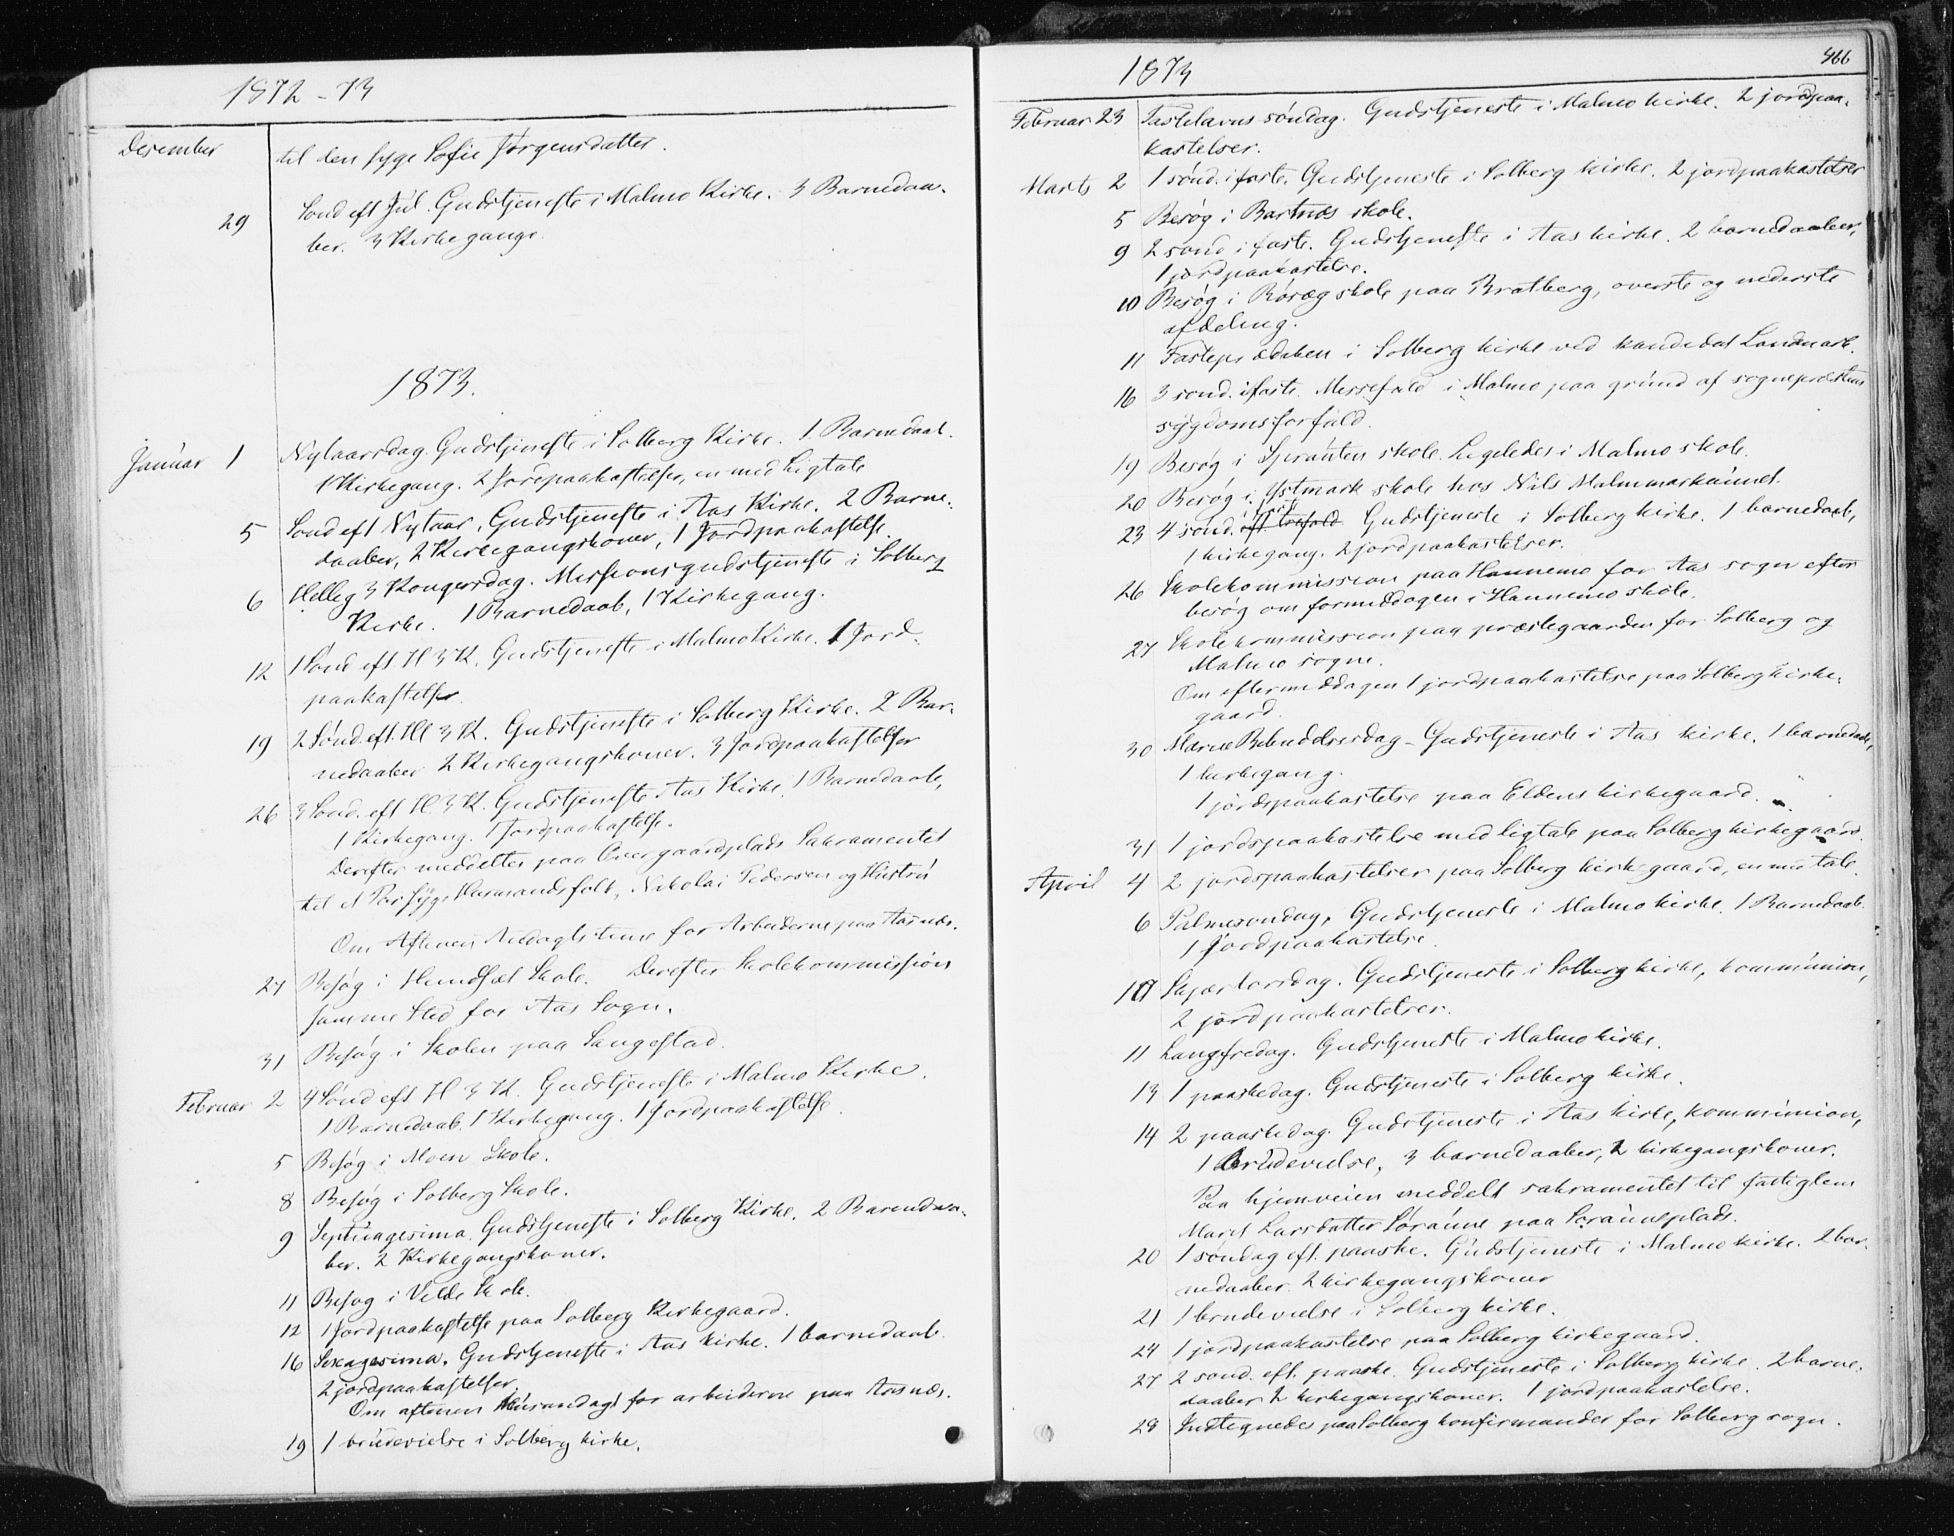 1872-73
Desember til den syge Sofie Jørgensdatter.
29 Sønd eft Jul. Gudstjeneste i Malmo Kirke. 3 Barnedaa-
ber. 3 Kirkegange.
1873.
Januar 1 Nytaarsdag. Gudstjeneste i Solberg Kirke. 1 Barnedaab.
1 Kirkegang. 2 Jordpaakastelser, en med Ligtale
5 Sønd eft Nytaar, Gudstjeneste i Aas Kirke. 2 Barne-
daaber, 2 Kirkegangskoner, 1 Jordpaakastelse.
6 Hellig 3 Kongersdag. Missionsgudstjeneste i Solberg
Kirke. 1 Barnedaab, 1 Kirkegang.
12 1 Sønd eft. H 3 K. Gudstjeneste i Malmo Kirke. 1 Jord-
paakastelse
19 2 Sønd. eft. Hl 3 K. Gudstjeneste i Solberg Kirke. 2 Bar-
nedaaber 2 Kirkegangskoner. 3 Jordpaakastelser
26 3 Sønd. eft H 3 K. Gudstjeneste i Aas Kirke. 1 Barnedaab,
1 Kirkegang. 1 Jordpaakastelse.
Derefter meddeltes paa Overgaardplads Sakramentet
til Husmandsfolk, Nikolai Pedersen og Hustru
Om Aftenen for Arbeiderne paa Aasnæs.
27 Besøg i Hundsæt Skole. Derefter Skolekommission
samme Sted for Aas Sogn.
31 Besøg i Skolen paa Langestad.
Februar 2 4 Sønd eft H 3 K. Gudstjeneste i Malmo Kirke.
1 Barnedaab. 1 Kirkegang. 1 Jordpaakastelse.
5 Besøg i Moen Skole.
8 Besøg i Solberg Skole.
9 Septuagesima. Gudstjeneste i Solberg Kirke. 2 Barnedaa-
ber. 2 Kirkegangskoner.
11 Besøg i Velde Skole.
12 1 Jordpaakastelse paa Solberg Kirkegaard.
16 Sexagesima. Gudstjeneste i Aas kirke. 1 barnedaab.
2 jordpaakastelser
Om aftenen for arbeiderne paa Aasnæs.
19 1 brudevielse i Solberg kirke.
1873
466
Februar 23 Fastelavns søndag. Gudstjeneste i Malmo kirke. 2 jordpaa-
kastelser.
Marts 2 1 sønd. i faste. Gudstjeneste i Solberg kirke. 2 jordpaakastelser
5 Besøg i Bartnes skole.
9 2 sønd i faste. Gudstjeneste i Aas kirke. 2 barnedaaber,
1 jordpaakastelse.
10 Besøg i Røsæg skole paa Bratberg, øverste og nederste
afdeling.
11 Fasteprædiken i Solberg kirke ved kandidat Landmark.
16 3 sønd. i faste. Messefald i Malmo paa grund af sogneprestens
sygdomsforfald.
19 Besøg i skole. Ligeledes i Malmo skole.
20 Besøg i Østmark skole hos Nils
23 4 sønd. i faste Gudstjeneste i Solberg kirke. 1 barnedaab,
1 kirkegang. 2 jordpaakastelser.
26 Skolekommission paa Hannemo for Aas sogn efter
besøg om formiddagen i Hannemo skole.
27 Skolekommission paa præstegaarden for Solberg og
Malmo sogne.
Om eftermiddagen 1 jordpaakastelse paa Solberg kirke-
gaard.
30 Mariæ Bebudelsesdag - Gudstjeneste i Aas kirke. 1 barnedaab,
1 kirkegang.
1 jordspaakastelse paa Eldens kirkegaard.
31 1 jordspaakastelse med ligtale paa Solberg kirkegaard.
April 4 2 jordspaakastelser paa Solberg kirkegaard, en med tale.
6 Palmesøndag, Gudstjeneste i Malmo kirke. 1 Barnedaab.
1 Jordpaakastelse.
10 Skjærtorsdag. Gudstjeneste i Solberg kirke, kommunion,
2 jordpaakastelser.
11 Langfredag. Gudstjeneste i Malmo kirke.
13 1 paaskedag. Gudstjeneste i Solberg kirke.
14 2 paaskedag. Gudstjeneste i Aas kirke, kommunion,
1 Brudevielse, 3 barnedaaber, 2 kirkegangskoner.
Paa hjemveien meddelt sakramentet til fattiglem
Marit Larsdatter paa
20 1 søndag eft. paaske. Gudstjeneste i Malmo kirke. 2 bar-
nedaaber. 2 kirkegangskoner
21 1 brudevielse i Solberg kirke.
24 1 jordpaakastelse paa Solberg kirkegaard.
27 2 sønd. eft. paaske. Gudstjeneste i Solberg kirke. 2 barne-
daaber 2 kirkegangskoner. 1 jordpaakastelse.
28 Indtegnedes paa Solberg konfirmander for Solberg sogn.